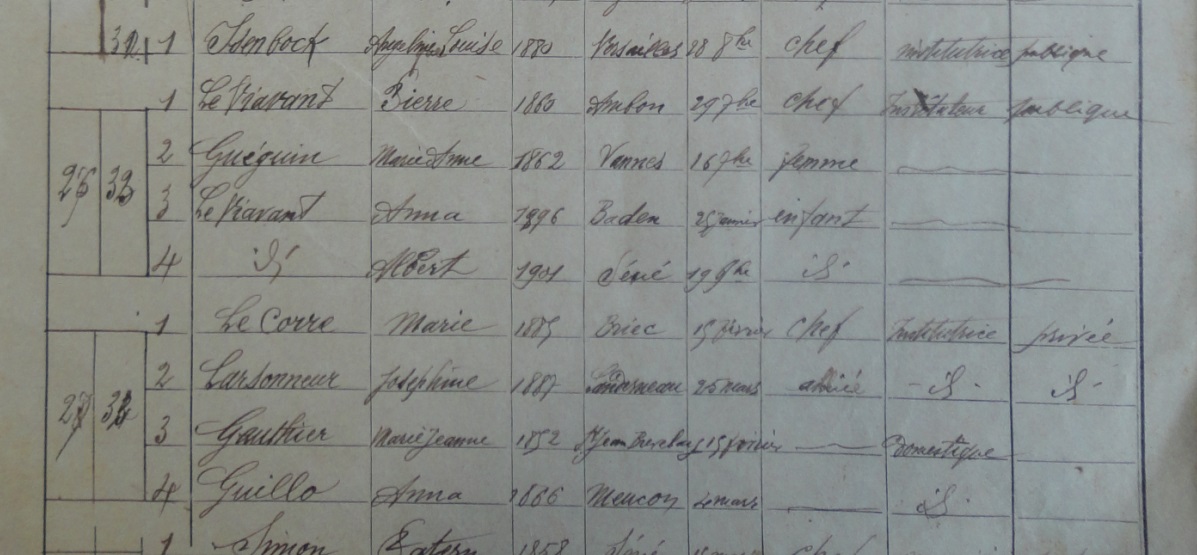 1 Isenbock Louise 1880 Versailles 28 8bre chef institutrice publique
1 Le Viavant Pierre 1860 Ambon 29 7bre chef Instituteur publique
2 Guéguin Marie Anne 1862 Vannes 16 7bre femme
3 Le Viavant Anna 1896 Baden 25 janvier enfant
4 id Albert 1901 Séné 19 id
1 Le Corre Marie 1885 Briec 15 février chef Institutrice privée
2 Larsonneur Joséphine 1887 Landerneau 25 mars id id
3 Gauthier Marie Jeanne 1852 St Jean Brevelay 15 février Domestique
4 Guillo Anna 1866 Meucon 4 mars id
1 Simon 1858 Séné chef